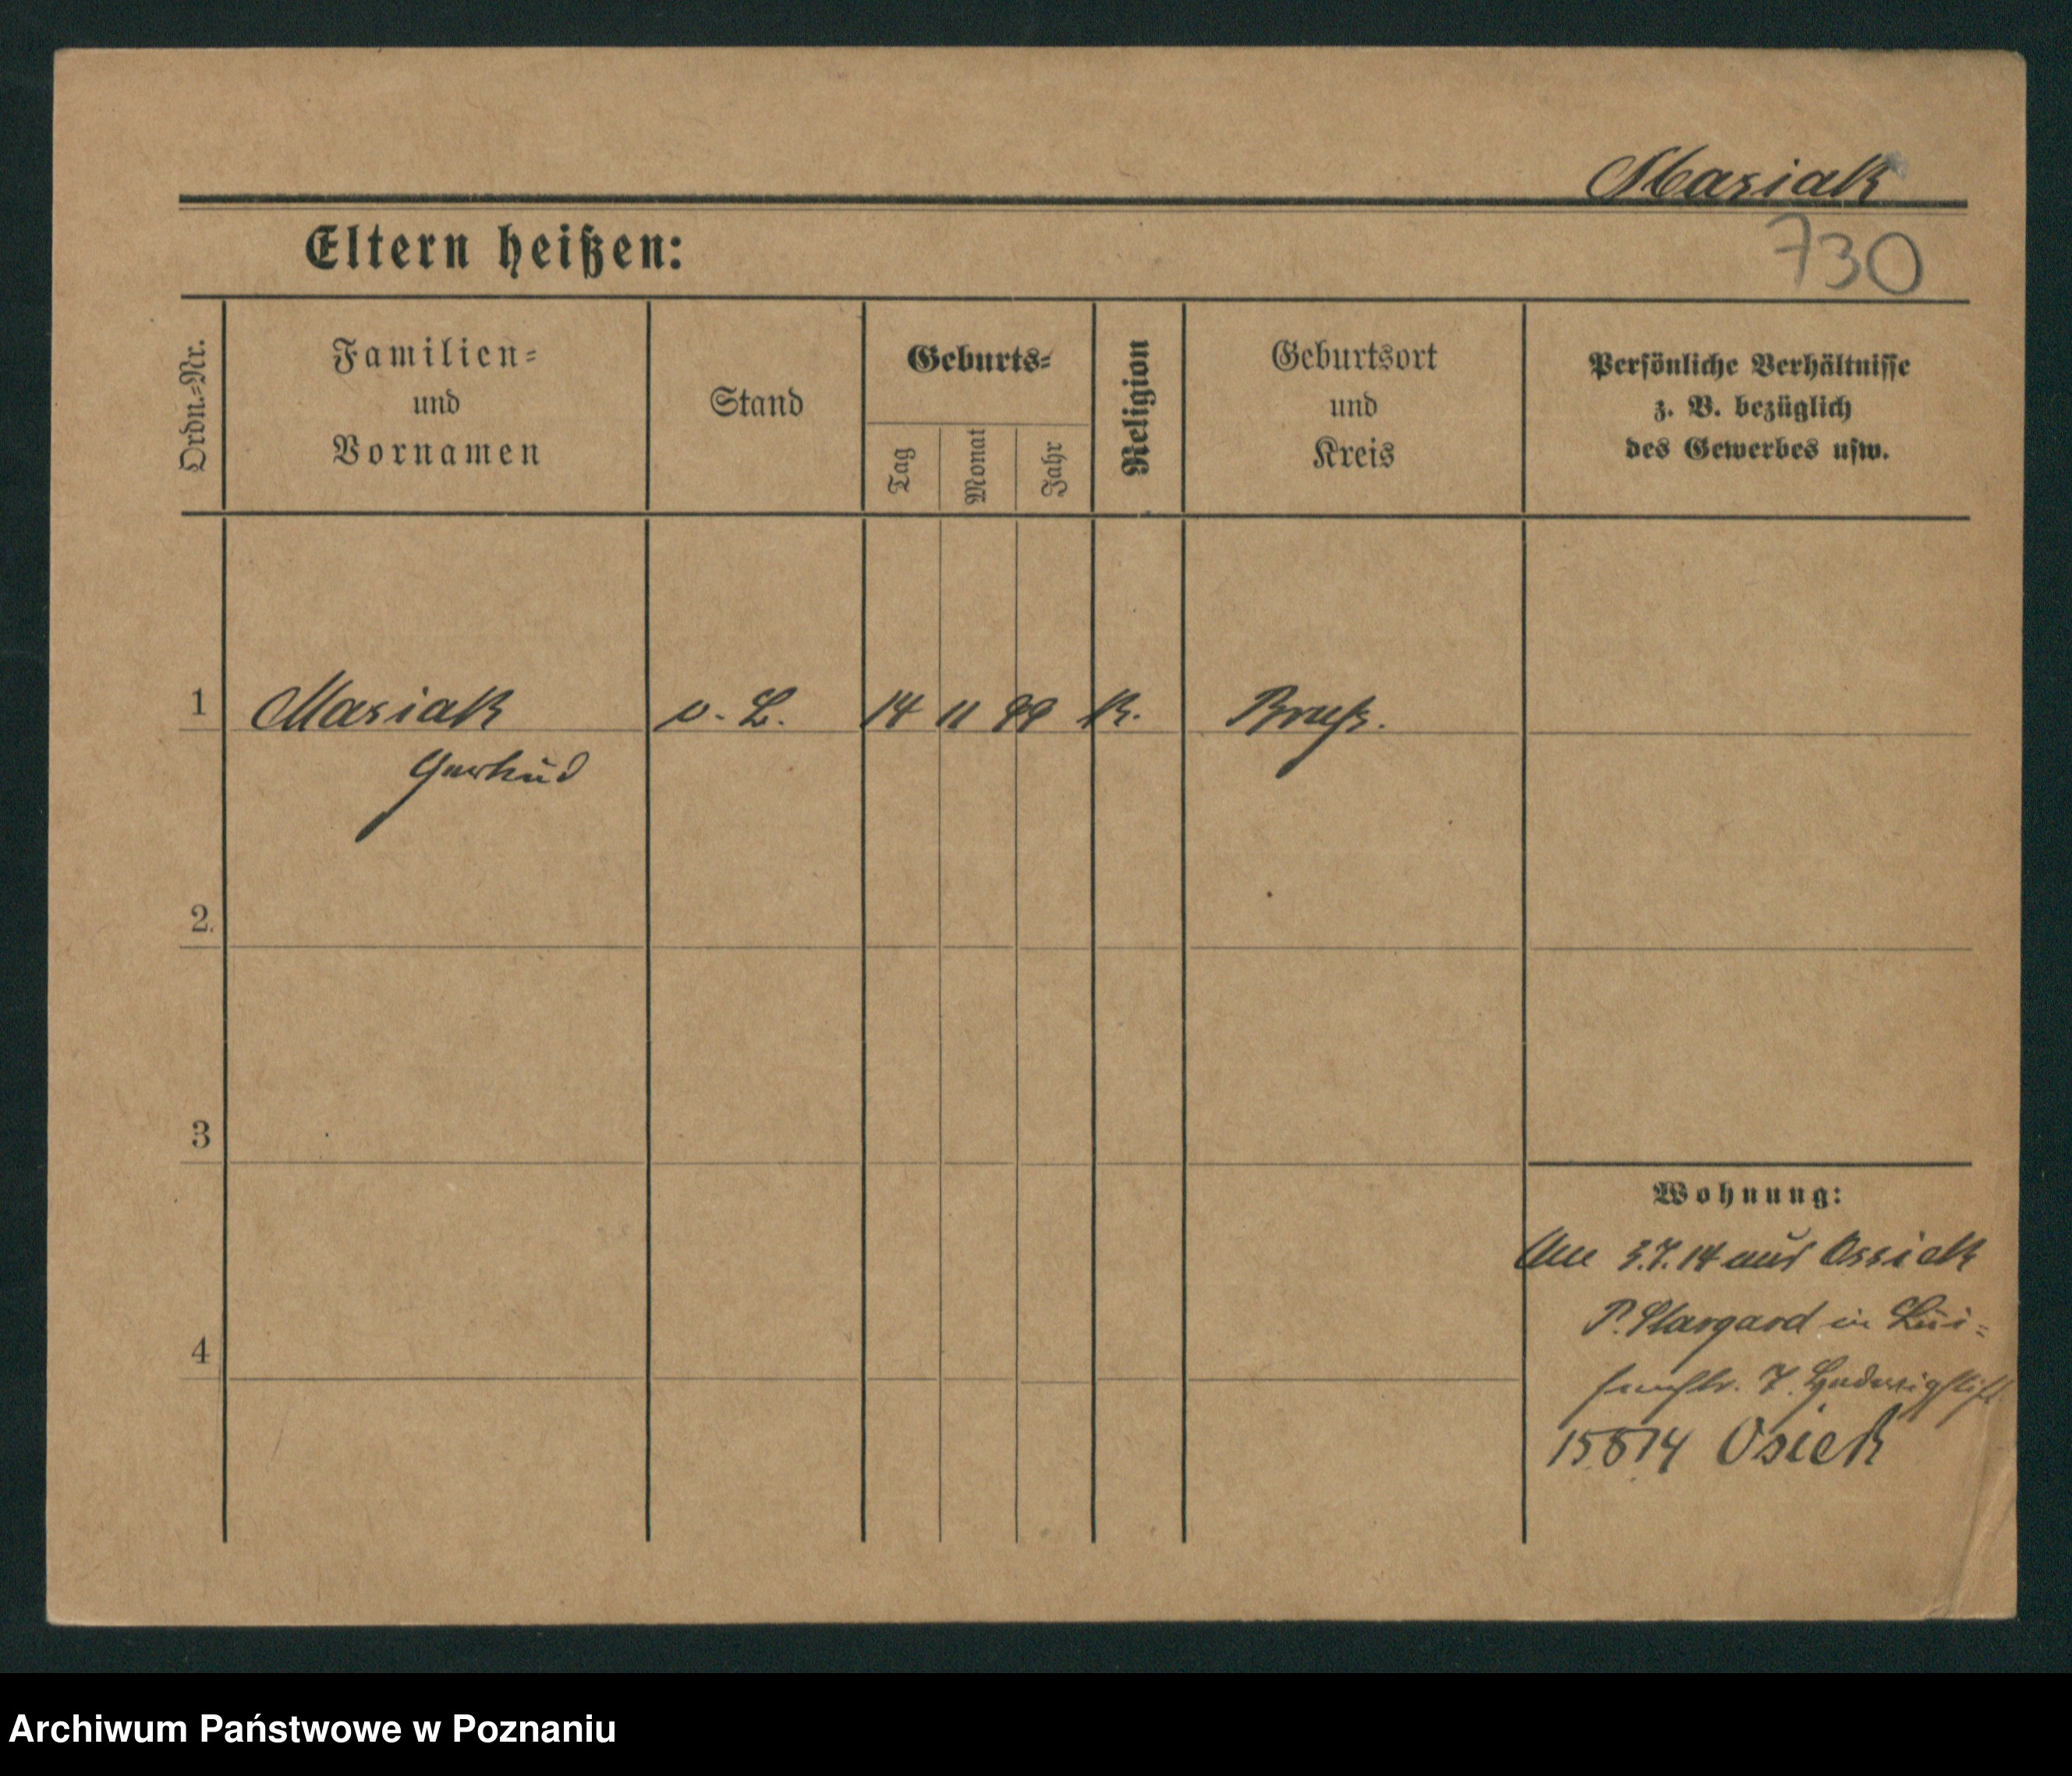 Masiak
730
Eltern heißen:
Ordn.-Nr.
Familien-
und
Vornamen
Stand
Geburts-
Tag
Monat
Jahr
Religion
Geburtsort
und
Kreis
Persönliche Verhältnisse
z. B. bezüglich
des Gewerbes usw.
1
Masiak
o. L.
14
11
99
k.
Bruß.
Gertrud
2
3
4
Wohnung:
3.7.14 aus Ossiek
P. Stargard in Lui-
senstr. 7. Hedwigstift
15 8 14 Osiek
Archiwum Państwowe w Poznaniu